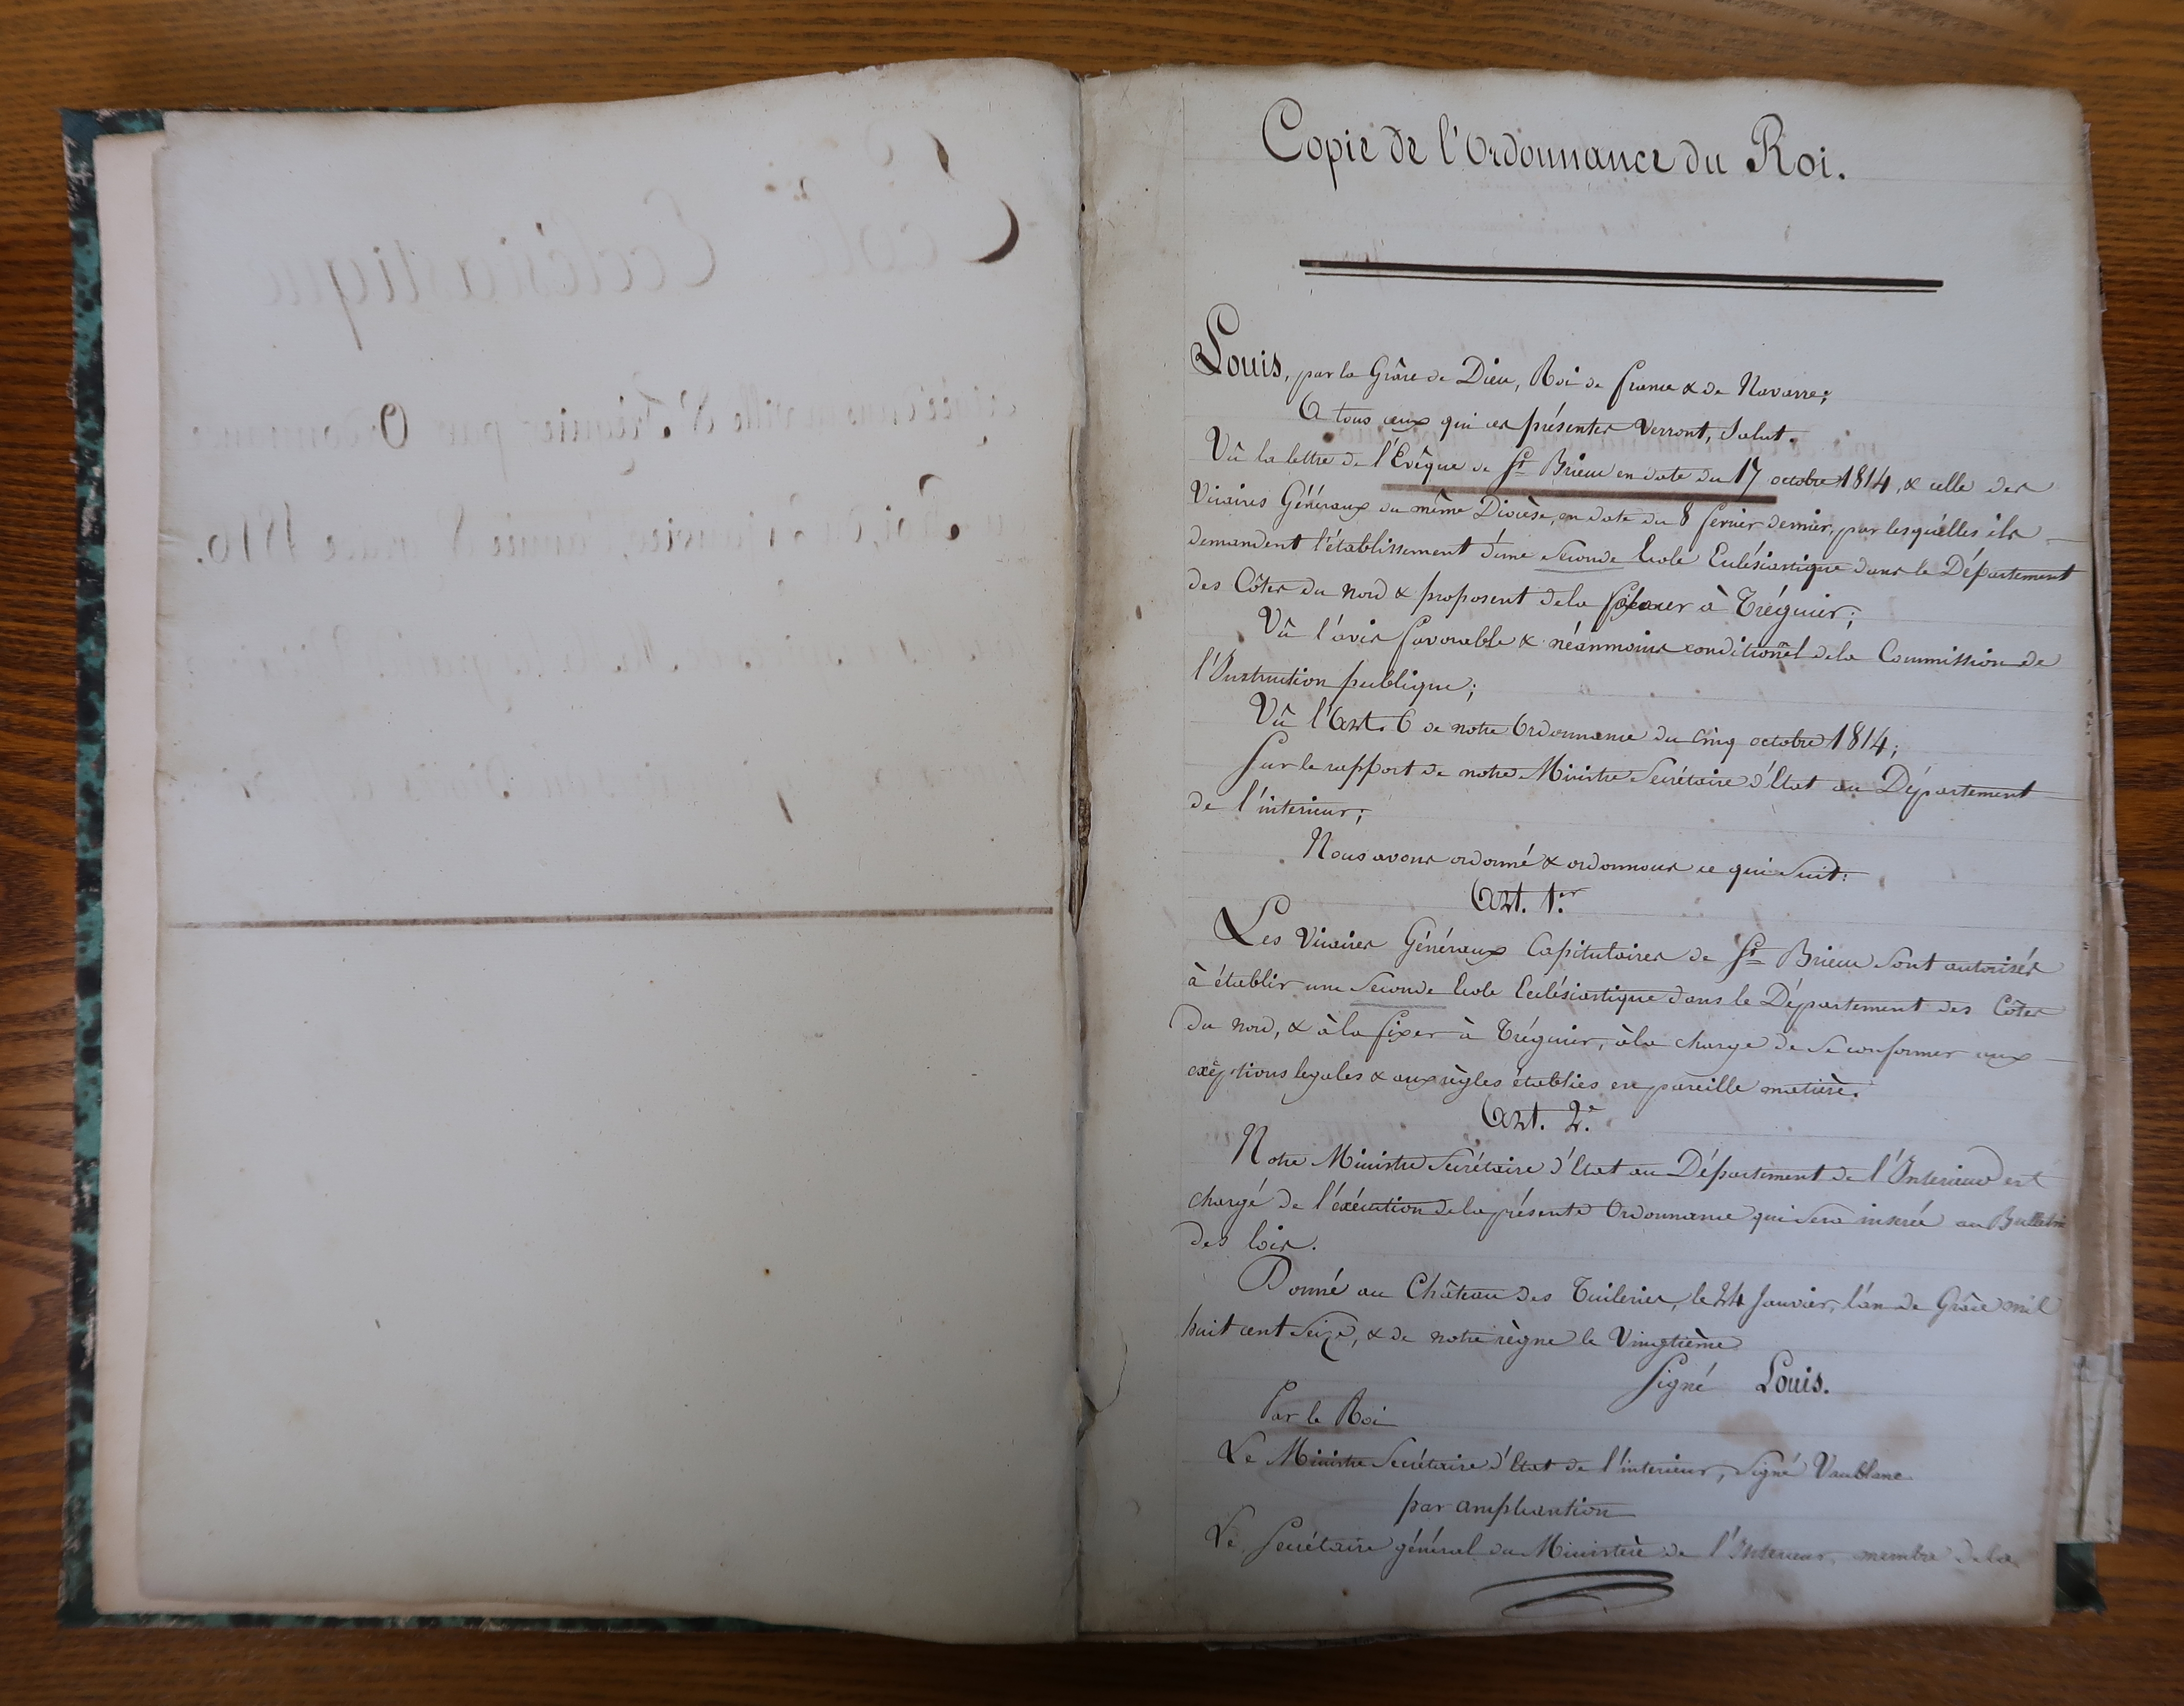 Ecole Ecclésiastique
érigée dans la ville de Tréguier par Ordonnance
du Roi, du 24 janvier, l'année de grace 1816.
Copie de l'Ordonnance du Roi.
Louis, par la Grâce de Dieu, Roi de france & de Navarre;
A tous ceux qui ces présentes Verront, Salut.
Vû la lettre de l'Evêque de St Brieuc en date du 17 octobre 1814, & celle des
Vicaires Généraux du même Diocèse, en date du 8 fevrier dernier, par lesquèlles ils
demandent l'établissement d'une Seconde Ecole Ecclésiastique dans le Département
des Côtes du nord & proposent de la placer à Tréguier;
Vû l'avis favorable & néanmoins conditionêl de la Commission de
l'Instruction publique;
Vû l'Art. 6 de notre Ordonnance du cinq octobre 1814;
Sur le rapport de notre Ministre Secrétaire d'Etat au Département
de l'interieur;
Nous avons ordonné & ordonnons ce qui Suit:
Art. 1.er
Les Vicaires Généraux Capitulaires de St Brieuc Sont autorisés
à établir une Seconde Ecole Ecclésiastique dans le Département des Côtes
du nord, & à la fixer à Tréguier, à la charge de Se conformer aux
exêptions legales & aux règles établies en pareille matière.
Art. 2.e
Notre Ministre Secrétaire d'Etat au Département de l'Interieur est
chargé de l'éxécution de la présente Ordonnance qui Sera insérée au Bulletin
des loix.
Donné au Château des Tuileries, le 24 Janvier, l'an de Grâce mil
huit cent Seize, & de notre règne le Vingtième
Signé Louis.
Par le Roi
Le Ministre Secrétaire d'Etat de l'interieur, Signé Vaublanc
par ampliation
Le Secrétaire général du Ministère de l'Interieur, membre de la